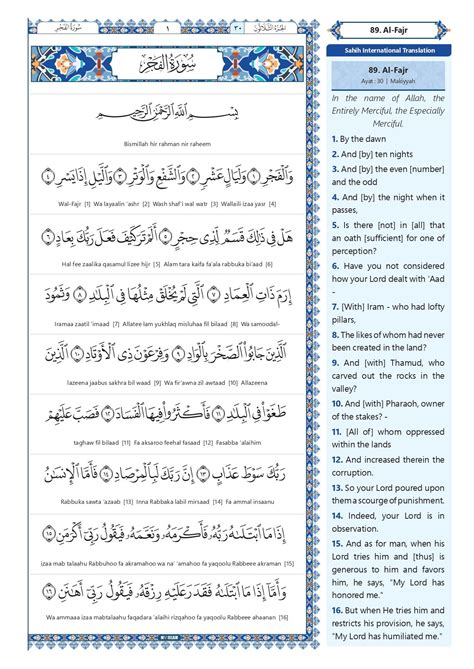 سُورَةُ الْفَجْرِ ١ ٣٠ الجزء الثلاثون
سُورَةُ الْفَجْرِ
بِسْمِ اللَّهِ الرَّحْمَٰنِ الرَّحِيمِ
Bismillah hir rahman nir raheem
وَالْفَجْرِ ١ وَلَيَالٍ عَشْرٍ ٢ وَالشَّفْعِ وَالْوَتْرِ ٣ وَاللَّيْلِ إِذَا يَسْرِ ٤
Wal-Fajr [1] Wa layaalin 'ashr [2] Wash shaf'i wal watr [3] Wallaili izaa yasr [4]
هَلْ فِي ذَٰلِكَ قَسَمٌ لِّذِي حِجْرٍ ٥ أَلَمْ تَرَ كَيْفَ فَعَلَ رَبُّكَ بِعَادٍ ٦
Hal fee zaalika qasamul lizee hijr [5] Alam tara kaifa fa'ala rabbuka bi'aad [6]
إِرَمَ ذَاتِ الْعِمَادِ ٧ الَّتِي لَمْ يُخْلَقْ مِثْلُهَا فِي الْبِلَادِ ٨ وَثَمُودَ
Iramaa zaatil 'imaad [7] Allatee lam yukhlaq misluhaa fil bilaad [8] Wa samoodal-
الَّذِينَ جَابُوا الصَّخْرَ بِالْوَادِ ٩ وَفِرْعَوْنَ ذِي الْأَوْتَادِ ١٠ الَّذِينَ
lazeena jaabus sakhra bil waad [9] Wa fir'awna zil awtaad [10] Allazeena
طَغَوْا فِي الْبِلَادِ ١١ فَأَكْثَرُوا فِيهَا الْفَسَادَ ١٢ فَصَبَّ عَلَيْهِمْ
taghaw fil bilaad [11] Fa aksaroo feehal fasaad [12] Fasabba 'alaihim
رَبُّكَ سَوْطَ عَذَابٍ ١٣ إِنَّ رَبَّكَ لَبِالْمِرْصَادِ ١٤ فَأَمَّا الْإِنسَانُ
Rabbuka sawta 'azaab [13] Inna Rabbaka labil mirsaad [14] Fa ammal insaanu
إِذَا مَا ابْتَلَاهُ رَبُّهُ فَأَكْرَمَهُ وَنَعَّمَهُ فَيَقُولُ رَبِّي أَكْرَمَنِ ١٥
izaa mab talaahu Rabbuhoo fa akramahoo wa na' 'amahoo fa yaqoolu Rabbeee akraman [15]
وَأَمَّا إِذَا مَا ابْتَلَاهُ فَقَدَرَ عَلَيْهِ رِزْقَهُ فَيَقُولُ رَبِّي أَهَانَنِ ١٦
Wa ammaaa izaa mabtalaahu faqadara 'alaihi rizqahoo fa yaqoolu Rabbeee ahaanan [16]
89. Al-Fajr
Sahih International Translation
89. Al-Fajr
Ayat : 30 | Makiyyah
In the name of Allah, the
Entirely Merciful, the Especially
Merciful.
1. By the dawn
2. And [by] ten nights
3. And [by] the even [number]
and the odd
4. And [by] the night when it
passes,
5. Is there [not] in [all] that
an oath [sufficient] for one of
perception?
6. Have you not considered
how your Lord dealt with 'Aad
-
7. [With] Iram - who had lofty
pillars,
8. The likes of whom had never
been created in the land?
9. And [with] Thamud, who
carved out the rocks in the
valley?
10. And [with] Pharaoh, owner
of the stakes? -
11. [All of] whom oppressed
within the lands
12. And increased therein the
corruption.
13. So your Lord poured upon
them a scourge of punishment.
14. Indeed, your Lord is in
observation.
15. And as for man, when his
Lord tries him and [thus] is
generous to him and favors
him, he says, "My Lord has
honored me."
16. But when He tries him and
restricts his provision, he says,
"My Lord has humiliated me."